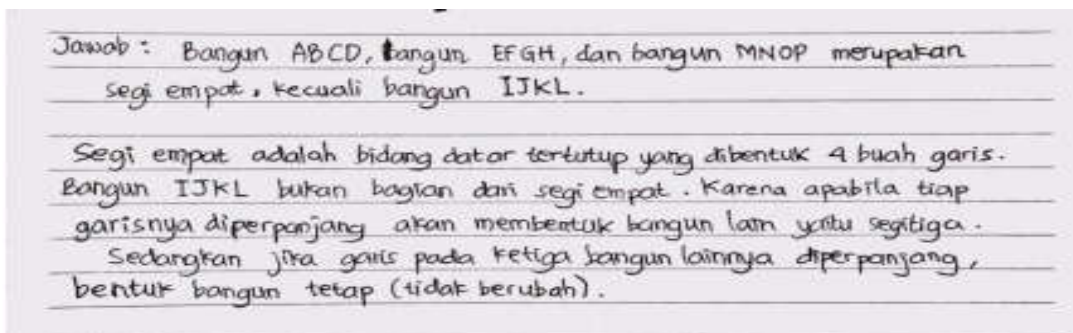 Jawab : Bangun ABCD, bangun EFGH, dan bangun MNOP merupakan
segi empat, kecuali bangun IJKL.
Segi empat adalah bidang datar tertutup yang dibentuk 4 buah garis.
Bangun IJKL bukan bagian dari segi empat. Karena apabila tiap
garisnya diperpanjang akan membentuk bangun lain yaitu segitiga.
Sedangkan jika garis pada ketiga bangun lainnya diperpanjang,
bentuk bangun tetap (tidak berubah).